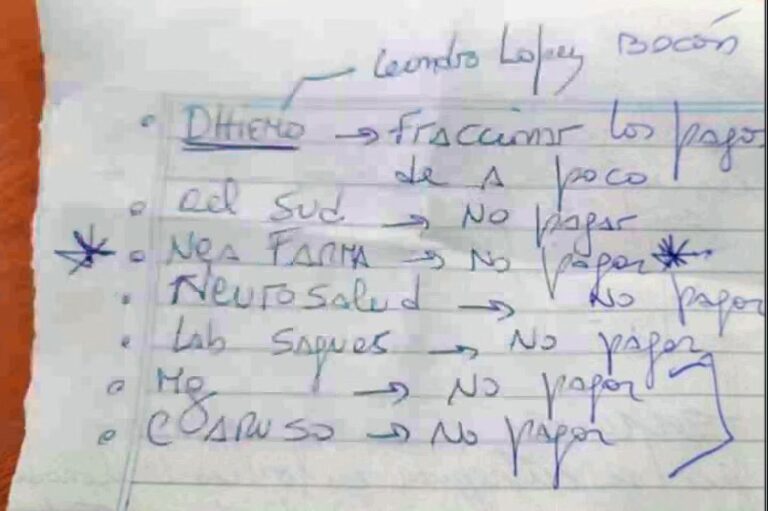 Leandro Lopez BOCÓN
• DHIEMO → Fraccionar los pagos
de A poco
• del Sud → No pagar
* • NEA FARMA → No pagar *
• Neurosalud → No pagar
• Lab Sagues → No pagar
• Mg → No pagar
• COARUSO → No pagar